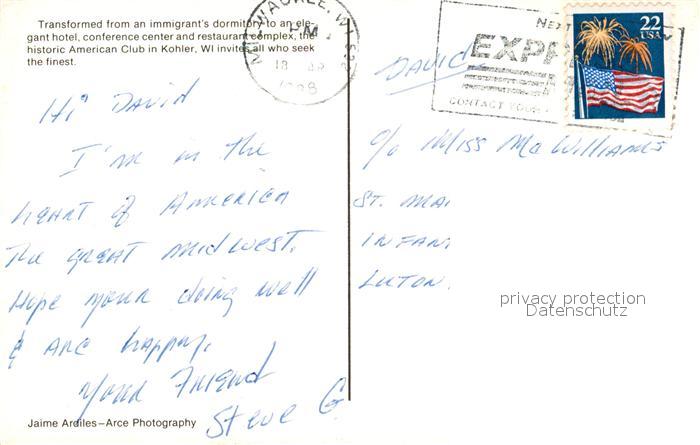 Transformed from an immigrant's dormitory to an ele-
gant hotel, conference center and restaurant complex, the
historic American Club in Kohler, WI invites all who seek
the finest.
MILWAUKEE, WI 532
PM
18 APR
1988
NEXT DAY
EXPR
CONTACT YOUR
22
USA
Hi David
I'm in the
heart of America
The great midwest.
Hope your doing well
& are happy.
Your Friend
Steve G
David
c/o Miss McWilliams
St. Mai
Infan
Luton.
privacy protection
Datenschutz
Jaime Ardiles–Arce Photography